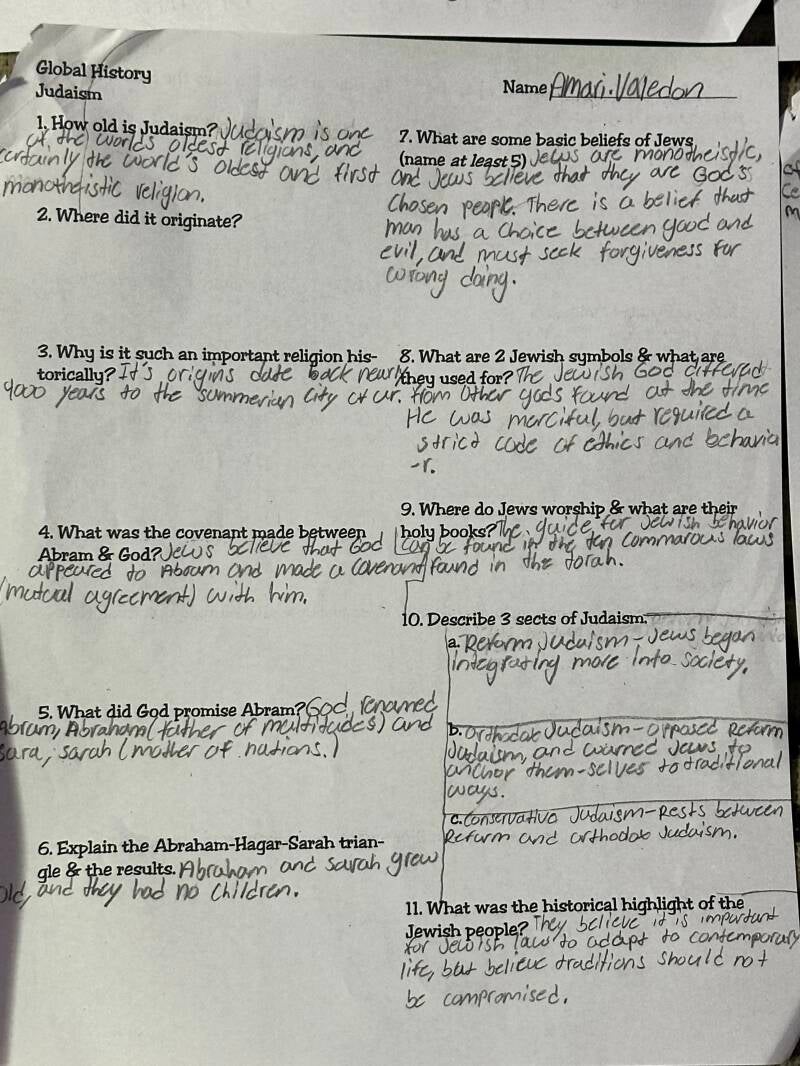 Global History
Judaism
Name Amari.Valedon
1. How old is Judaism? Judaism is one
of the worlds oldest religions, and
certainly the world's oldest and first
monotheistic religion.
2. Where did it originate?
3. Why is it such an important religion his-
torically? It's origins date back nearly
4000 years to the summerian city of ur.
4. What was the covenant made between
Abram & God? Jews believe that God
appeared to Abram and made a covenant
(mutual agreement) with him.
5. What did God promise Abram? God, renamed
Abram, Abraham (father of multitudes) and
sara, sarah (mother of nations.)
6. Explain the Abraham-Hagar-Sarah trian-
gle & the results. Abraham and sarah grew
old, and they had no children.
7. What are some basic beliefs of Jews
(name at least 5) Jews are monotheistic,
and Jews believe that they are God's
Chosen people. There is a belief that
man has a choice between good and
evil, and must seek forgiveness for
wrong doing.
8. What are 2 Jewish symbols & what are
they used for? The Jewish God differed
from other gods found at the time
He was merciful, but required a
strict code of ethics and behavio
-r.
9. Where do Jews worship & what are their
holy books? The guide for Jewish behavior
can be found in the ten laws
found in the torah.
10. Describe 3 sects of Judaism.
a. Reform Judaism-Jews began
integrating more into society.
b. Orthodox Judaism-opposed Reform
Judaism, and warned Jews to
anchor them-selves to traditional
ways.
c. Conservative Judaism-Rests between
Reform and orthodox Judaism.
11. What was the historical highlight of the
Jewish people? They believe it is important
for Jewish laws to adapt to contemporary
life, but believe traditions should not
be compromised.